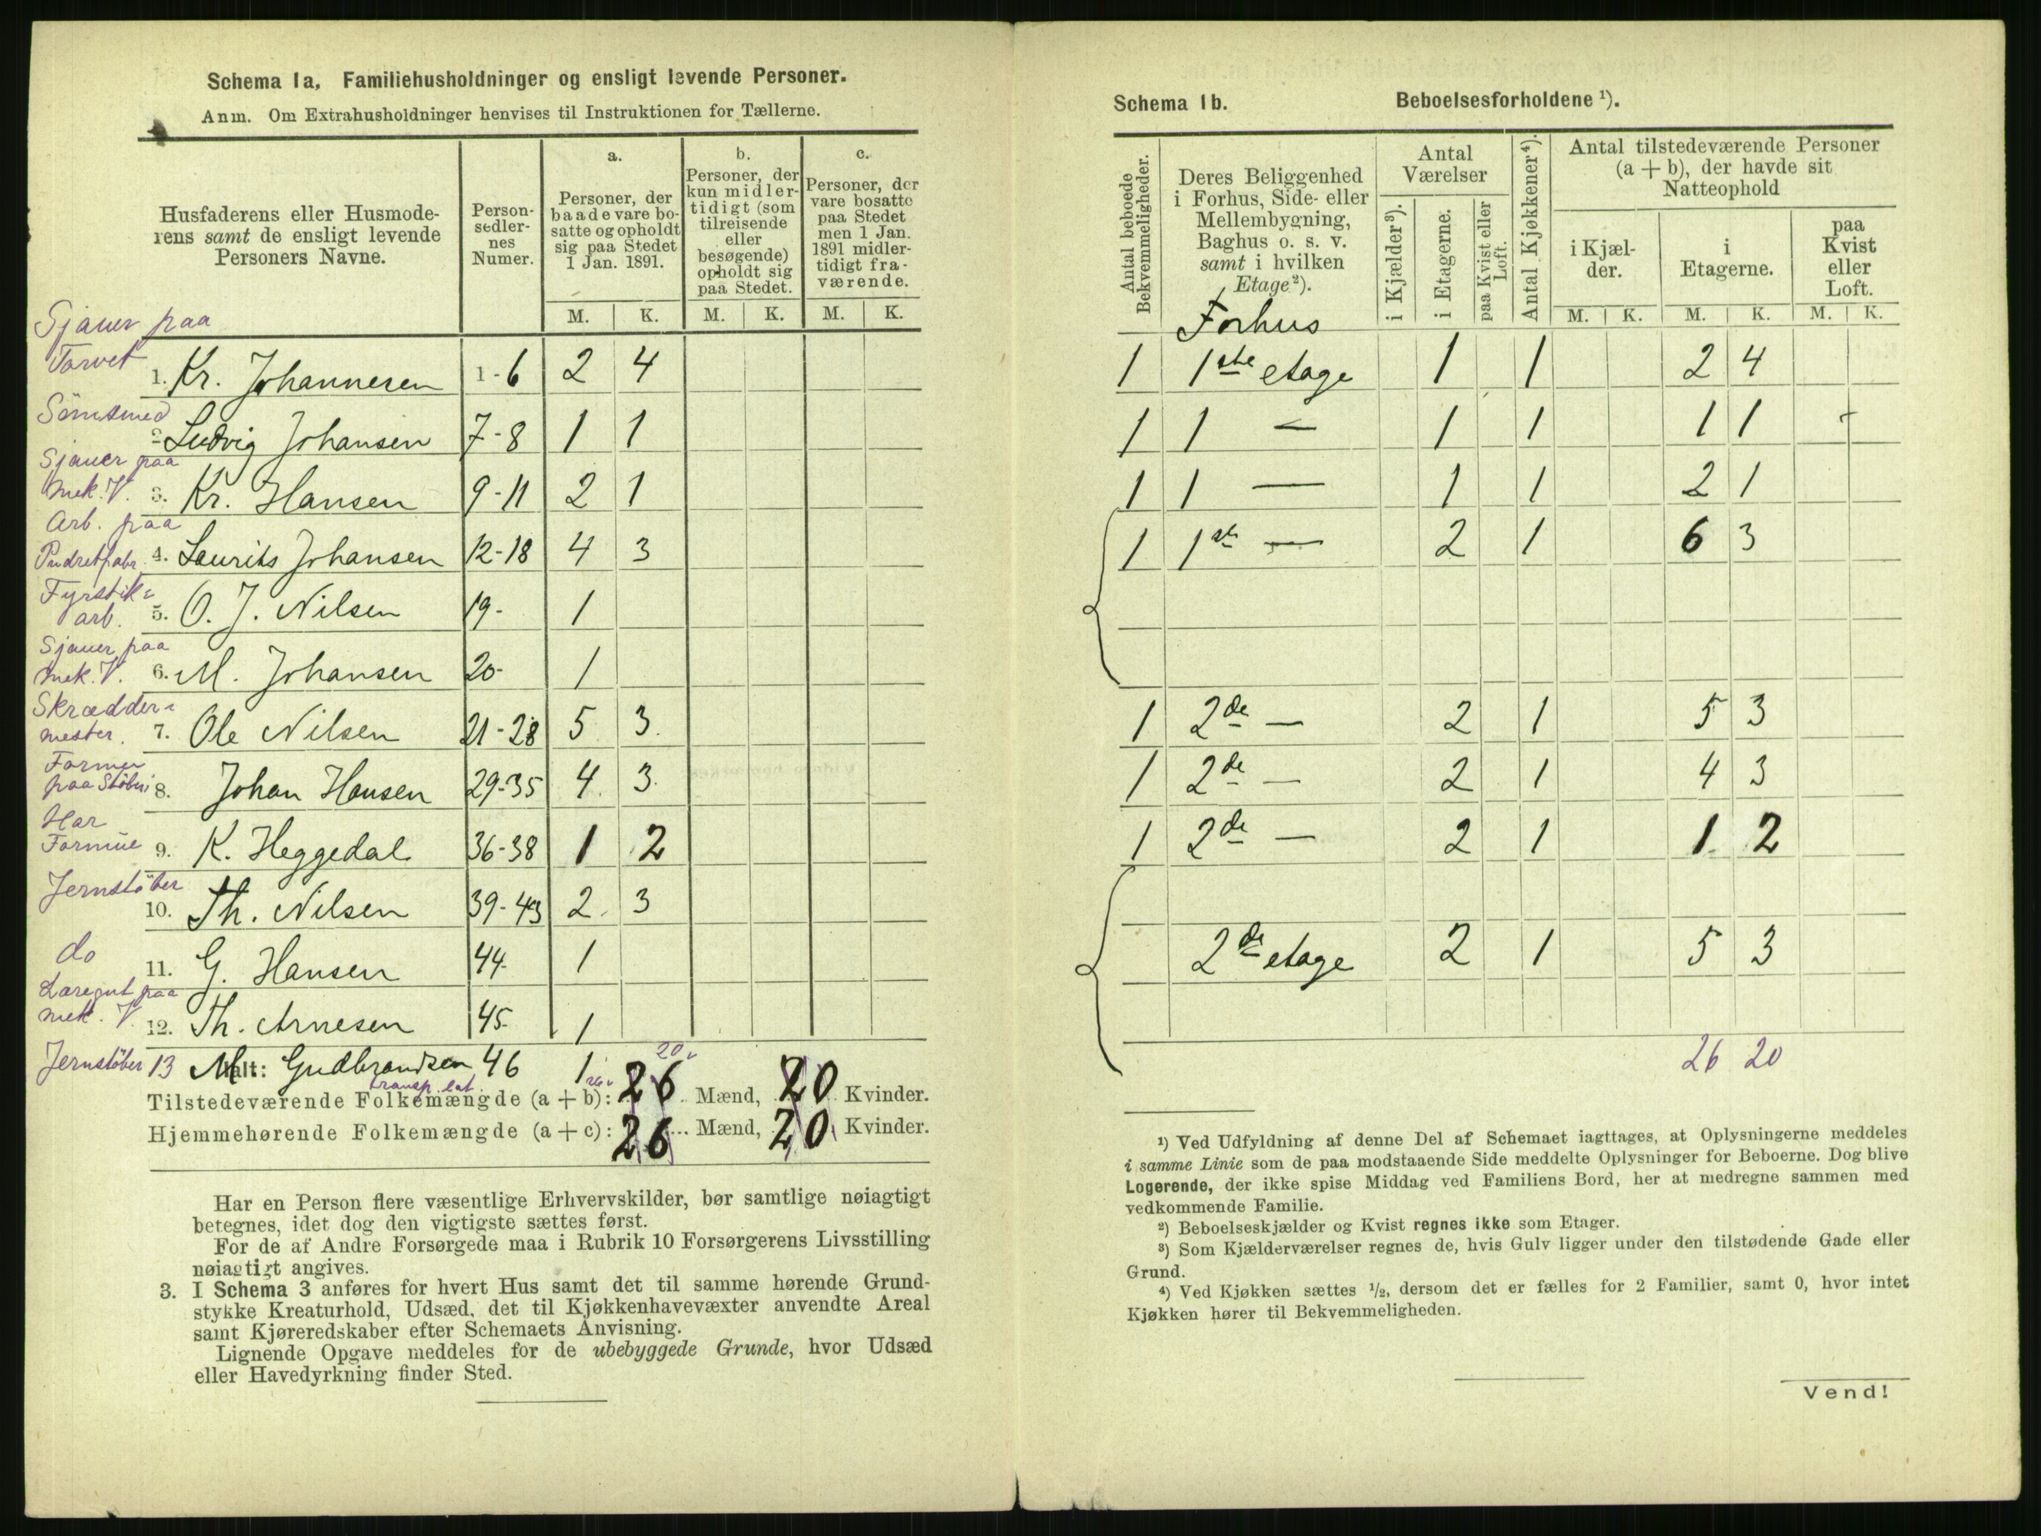 Schema 1a, Familiehusholdninger og ensligt levende Personer.
Anm. Om Extrahusholdninger henvises til Instruktionen for Tællerne.
Husfaderens eller Husmode-
rens samt de ensligt levende
Personers Navne.
Person-
sedler-
nes
Numer.
a.
Personer, der
baade vare bo-
satte og opholdt
sig paa Stedet
1 Jan. 1891.
b.
Personer, der
kun midler-
tidigt (som
tilreisende
eller
besøgende)
opholdt sig
paa Stedet.
c.
Personer, der
vare bosatte
paa Stedet
men 1 Jan.
1891 midler-
tidigt fra-
værende.
M. K. M. K. M. K.
Sjauer paa
Torvet
1. Kr. Johannesen 1-6 2 4
Sömsmed
2. Ludvig Johansen 7-8 1 1
Sjauer paa
mek. V. 3. Kr. Hansen 9-11 2 1
Arb. paa
Pudretfabr. 4. Laurits Johansen 12-18 4 3
Fyrstik-
arb. 5. O. J. Nilsen 19- 1
Sjauer paa
mek. V. 6. M. Johansen 20- 1
Skrædder-
mester. 7. Ole Nilsen 21-28 5 3
Former
paa Støberi 8. Johan Hansen 29-35 4 3
Har
Formue 9. K. Heggedal 36-38 1 2
Jernstöber
10. Th. Nilsen 39-43 2 3
do
11. G. Hansen 44- 1
Læregut paa
mek. V. 12. Th. Arnesen 45- 1
Jernstöber 13 M. Gudbrandsen 46 1
transp. lat. 26 20
Tilstedeværende Folkemængde (a + b): 26 Mænd, 20 Kvinder.
Hjemmehørende Folkemængde (a + c): 26 Mænd, 20 Kvinder.
Har en Person flere væsentlige Erhvervskilder, bør samtlige nøiagtigt
betegnes, idet dog den vigtigste sættes først.
For de af Andre Forsørgede maa i Rubrik 10 Forsørgerens Livsstilling
nøiagtigt angives.
3. I Schema 3 anføres for hvert Hus samt det til samme hørende Grund-
stykke Kreaturhold, Udsæd, det til Kjøkkenhavevæxter anvendte Areal
samt Kjøreredskaber efter Schemaets Anvisning.
Lignende Opgave meddeles for de ubebyggede Grunde, hvor Udsæd
eller Havedyrkning finder Sted.
Schema 1b. Beboelsesforholdene ¹).
Antal beboede
Bekvemmeligheder.
Deres Beliggenhed
i Forhus, Side- eller
Mellembygning,
Baghus o. s. v.
samt i hvilken
Etage²).
Antal
Værelser
i Kjælder³).
i Etagerne.
paa Kvist eller
Loft.
Antal Kjøkkener⁴).
Antal tilstedeværende Personer
(a + b), der havde sit
Natteophold
i Kjæl-
der.
i
Etagerne.
paa
Kvist
eller
Loft.
M. K. M. K. M. K.
Forhus
1 1ste etage 1 1 2 4
1 1 — 1 1 1 1
1 1 — 1 1 2 1
1 1ste — 2 1 6 3
1 2de — 2 1 5 3
1 2de — 2 1 4 3
1 2de — 2 1 1 2
2de etage 2 1 5 3
26 20
¹) Ved Udfyldning af denne Del af Schemaet iagttages, at Oplysningerne meddeles
i samme Linie som de paa modstaaende Side meddelte Oplysninger for Beboerne. Dog blive
Logerende, der ikke spise Middag ved Familiens Bord, her at medregne sammen med
vedkommende Familie.
²) Beboelseskjælder og Kvist regnes ikke som Etager.
³) Som Kjælderværelser regnes de, hvis Gulv ligger under den tilstødende Gade eller
Grund.
⁴) Ved Kjøkken sættes ½, dersom det er fælles for 2 Familier, samt 0, hvor intet
Kjøkken hører til Bekvemmeligheden.
Vend!